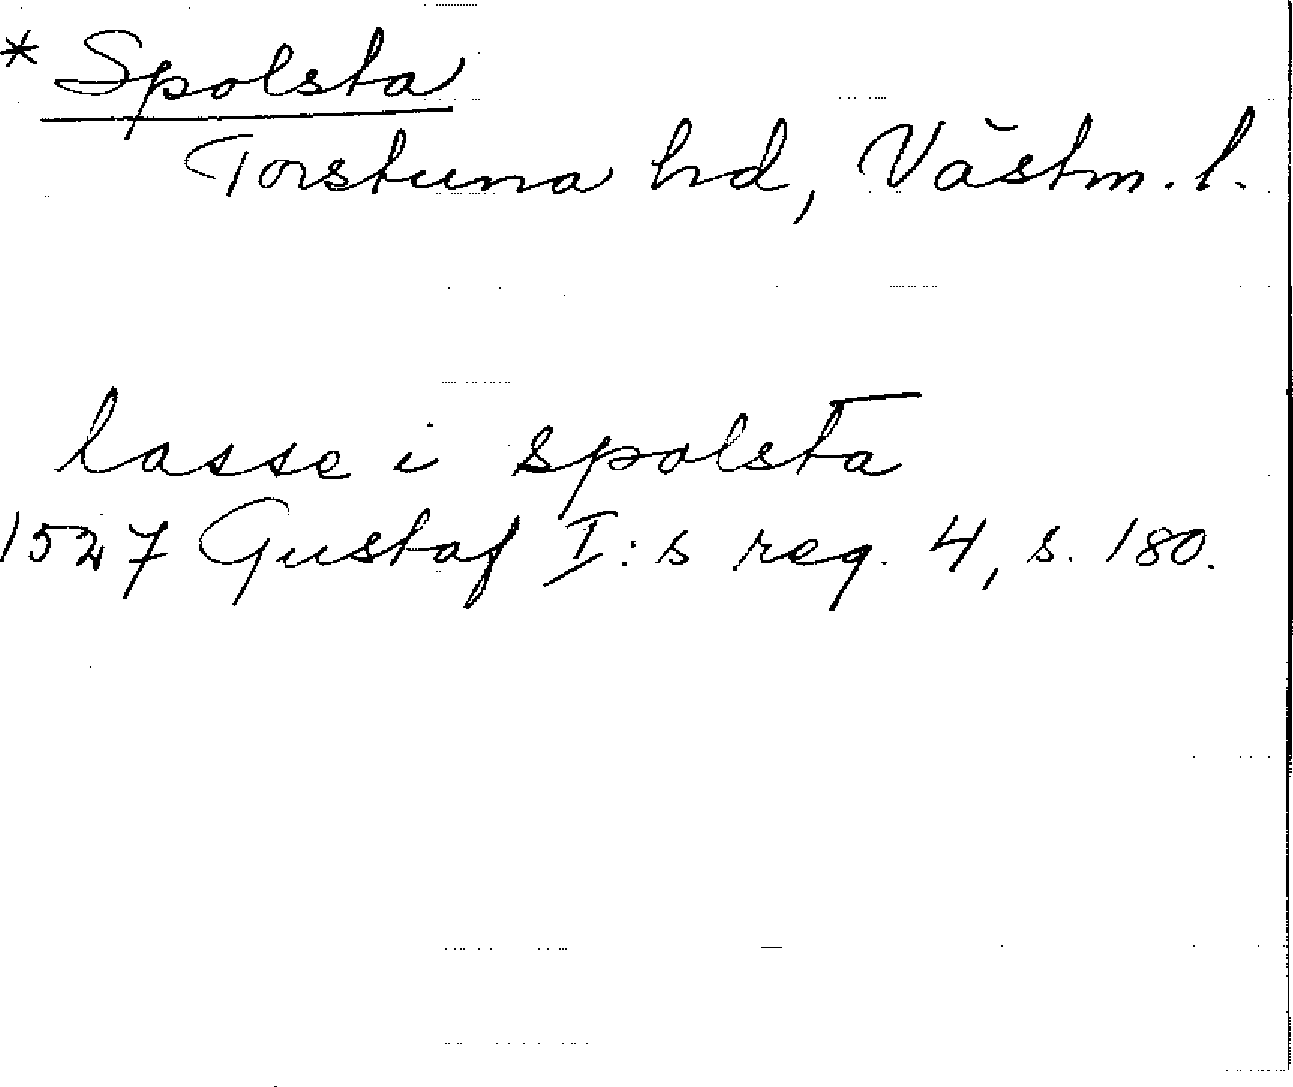 * Spolsta
Torstuna hd, Västm. l.
lasse i spolsta
1527 Gustaf I:s reg. 4, s. 180.